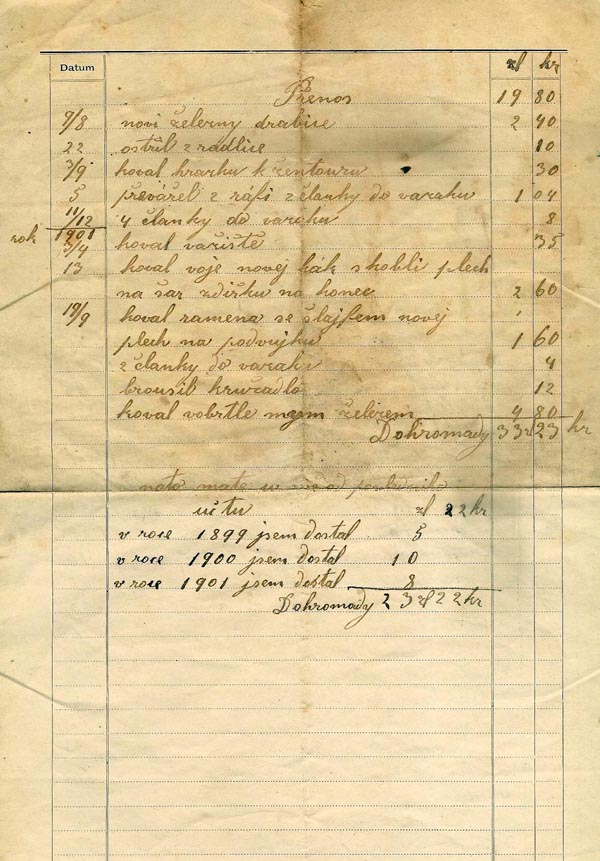 Datum zl kr
Přenos 19 80
9/8 novi železny drabice 2 40
22 ostřil z radlice 10
3/9 koval hrarku k žentouru 30
5 převářel z ráfi z članky do varaku 1 04
11/12 4 članky do varaku 8
rok 1901
3/4 koval vařiště 35
13 koval voje novej hák skobli plech
na šar zdišku na konec 2 60
19/9 koval ramena se šlajfem novej
plech na podvijku 1 60
z članky do varaku 4
brousil kružadlo 12
koval vobrtle mym želérem 4 80
Dohromady 33 zl 23 kr
nato mate u mě od
učtu zl 22 kr
v roce 1899 jsem dostal 5
v roce 1900 jsem dostal 10
v roce 1901 jsem dostal 8
Dohromady 23 zl 22 kr